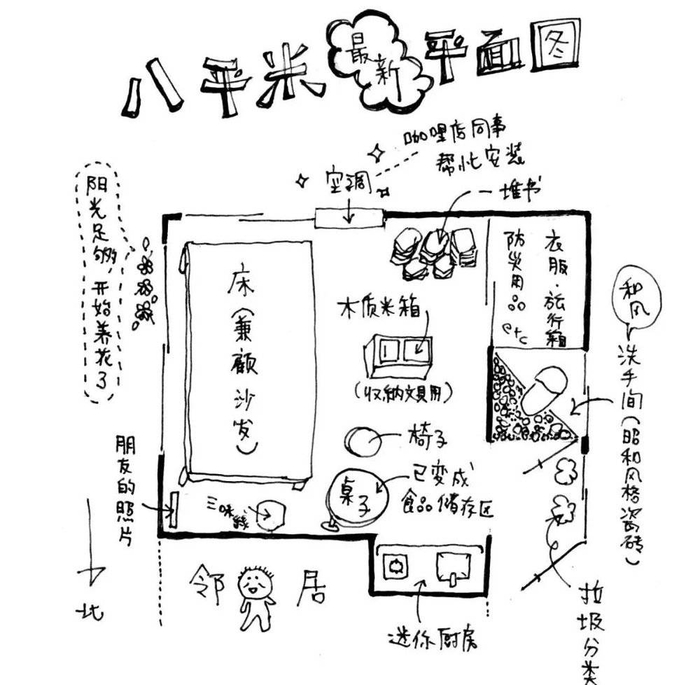 八平米最新平面图
咖喱店同事
帮忙安装
空调
一堆书
阳光足够,开始养花了
床(兼顾沙发)
木质米箱
(収納文具用)
防災用品etc
衣服·旅行箱
和风
洗手间(昭和风格瓷砖)
椅子
桌子
已变成
食品储存区
三味线
朋友的照片
北
邻居
迷你厨房
垃圾分类